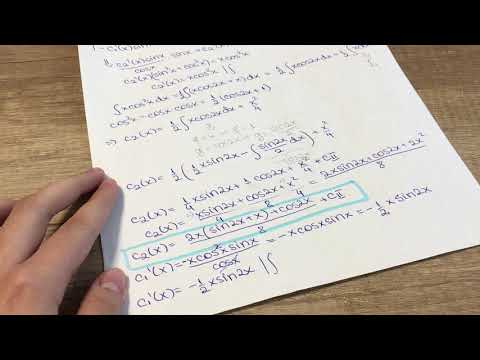 c₂'(x) sinx/cosx · sinx + c₂
c₂'(x)(sin²x + cos²x) = xcos²x
c₂'(x) = xcos²x ||∫
∫xcos²x dx = ½∫(xcos2x + x)dx = ½∫xcos2xdx +
cos²x = cosx·cosx = ½(cos2x + 1)
⇒ c₂(x) = ½∫xcos2xdx + x²/4
c₂(x) = ½(½xsin2x − ∫sin2x/2 dx) + x²/4
c₂(x) = ¼xsin2x + ⅛cos2x + x²/4 + C_II
c₂(x) = xsin2x/4 + cos2x/8 + x²/4 = 2xsin2x + cos2x + 2x²/8
c₂(x) = 2x(sin2x + x) + cos2x/8 + C_II
c₁'(x) = −xcos²x sinx/cosx = −xcosxsinx = −½xsin2x
c₁'(x) = −½xsin2x ||∫